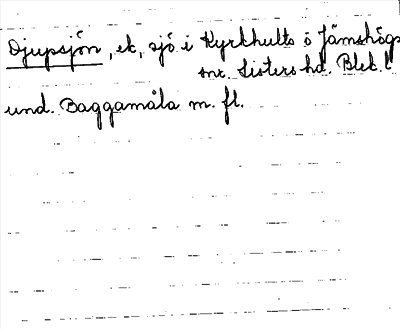 Djupsjön, ek, sjö i Kyrkhults o Jämshögs
snr. Listers hd. Blek. l
und. Baggamåla m. fl.